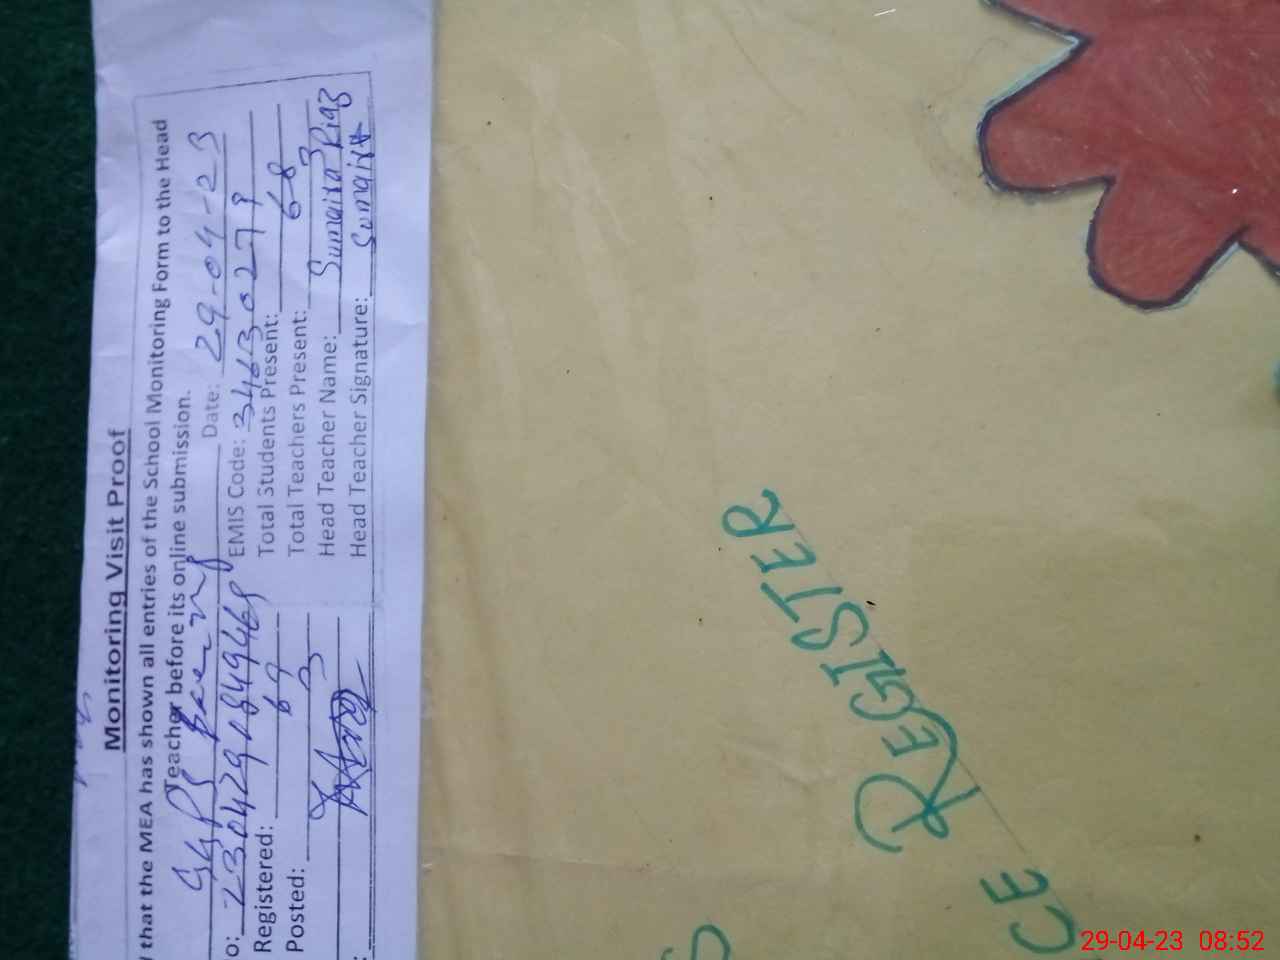 Monitoring Visit Proof
that the MEA has shown all entries of the School Monitoring Form to the Head
Teacher before its online submission.
GGPS Date: 29-04-23
o: EMIS Code: 34630279
Registered: 69 Total Students Present: 68
Posted: 3 Total Teachers Present: 3
Head Teacher Name: Sumaira Riaz
: Head Teacher Signature: Sumaira
CE REGISTER
29-04-23 08:52